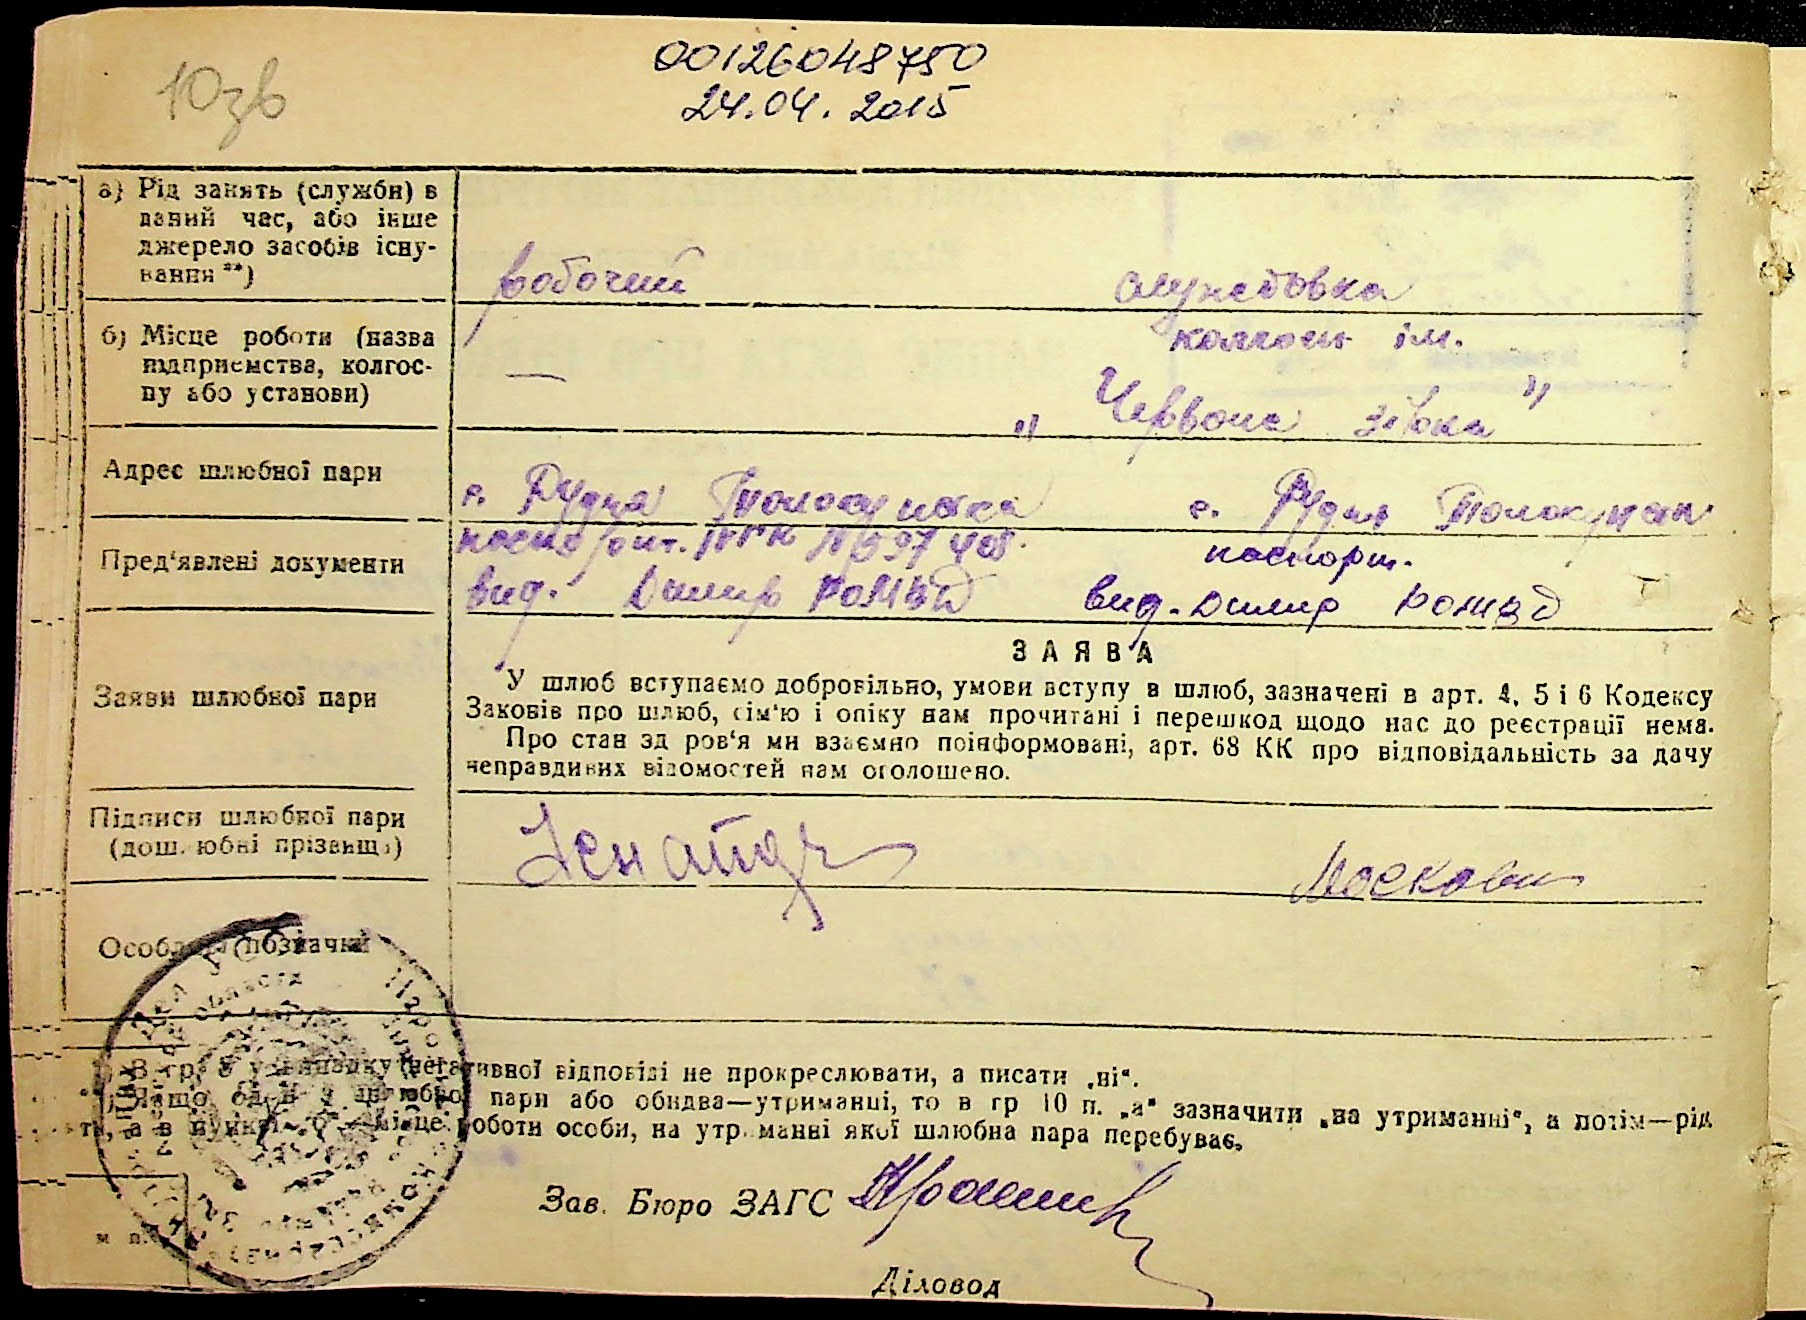 10зв
00126048750
24.04.2015
а) Рід занять (служби) в
даний час, або інше
джерело засобів існу-
вання **)
робочий
служебовка
б) Місце роботи (назва
підприємства, колгос-
пу або установи)
—
колгосп ім.
„ Червона зівка "
Адрес шлюбної пари
с. Рудня Толокунска
с. Рудня Толокунск
Пред'явлені документи
паспорт.
паспорт.
вид. Димир РОМВД
вид. Димир РОМВД
Заяви шлюбної пари
ЗАЯВА
У шлюб вступаємо добровільно, умови вступу в шлюб, зазначені в арт. 4, 5 і 6 Кодексу
Законів про шлюб, сім'ю і опіку нам прочитані і перешкод щодо нас до реєстрації нема.
Про стан здоров'я ми взаємно поінформовані, арт. 68 КК про відповідальність за дачу
неправдивих відомостей нам оголошено.
Підписи шлюбної пари
(дошлюбні прізвища)
Москови
Особливі позначки
у випадку негативної відповіді не прокреслювати, а писати „ні".
Якщо один з шлюбної пари або обидва—утриманці, то в гр 10 п. „а" зазначити „на утриманні", а потім—рід
місце роботи особи, на утриманні якої шлюбна пара перебуває.
Зав. Бюро ЗАГС
м п.
Діловод